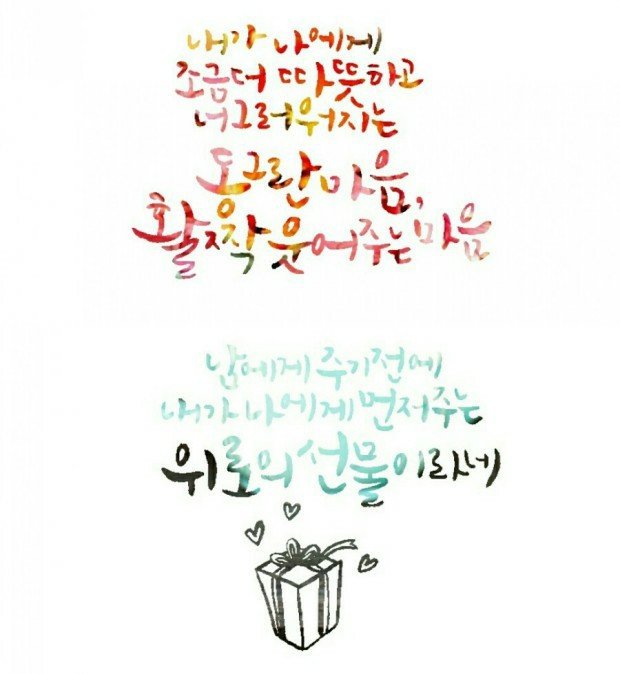 내가 나에게
조금더 따뜻하고
너그러워지는
동그란 마음,
활짝 웃어주는 마음
남에게 주기전에
내가 나에게 먼저주는
위로의 선물이라네